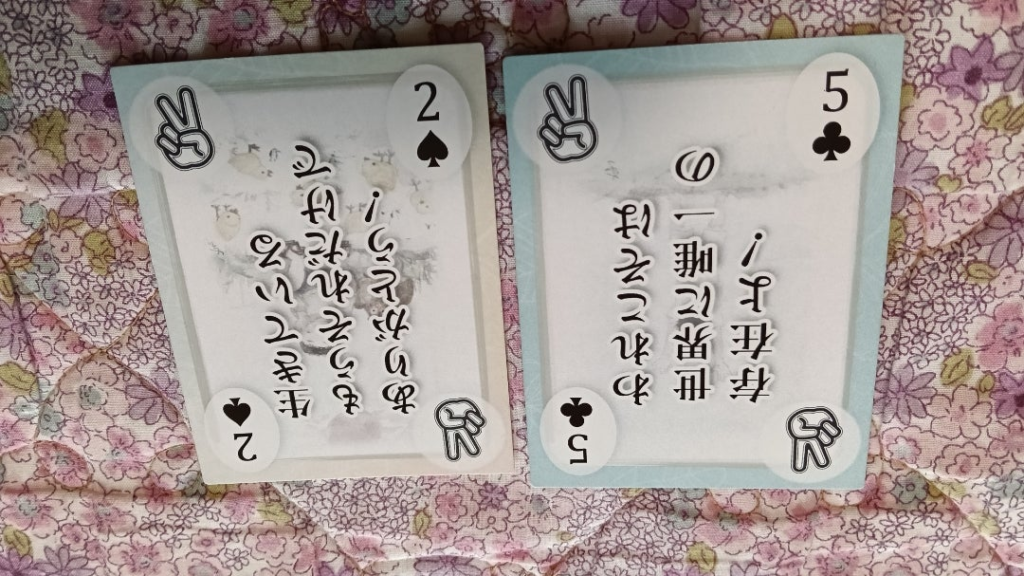 2
生きている
もうそれだけで
ありがとう！
2
5
われこそは
世界に唯一の
存在よ！
5